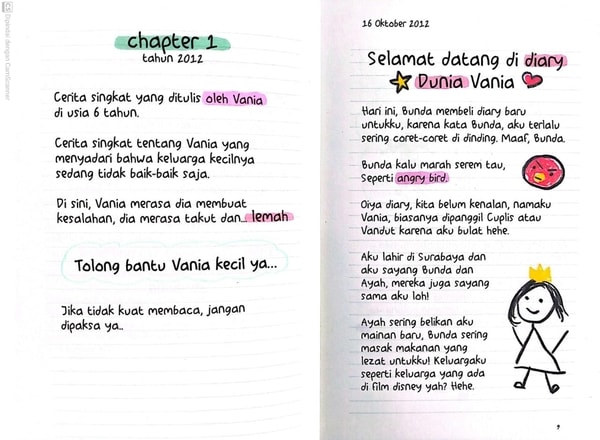 CS Dipindai dengan CamScanner
chapter 1
tahun 2012
Cerita singkat yang ditulis oleh Vania
di usia 6 tahun.
Cerita singkat tentang Vania yang
menyadari bahwa keluarga kecilnya
sedang tidak baik-baik saja.
Di sini, Vania merasa dia membuat
kesalahan, dia merasa takut dan... lemah
Tolong bantu Vania kecil ya...
Jika tidak kuat membaca, jangan
dipaksa ya..
16 Oktober 2012
Selamat datang di diary
Dunia Vania
Hari ini, Bunda membeli diary baru
untukku, karena kata Bunda, aku terlalu
sering coret-coret di dinding. Maaf, Bunda.
Bunda kalu marah serem tau,
Seperti angry bird.
Oiya diary, kita belum kenalan, namaku
Vania, biasanya dipanggil Cuplis atau
Vandut karena aku bulat hehe.
Aku lahir di Surabaya dan
aku sayang Bunda dan
Ayah, mereka juga sayang
sama aku loh!
Ayah sering belikan aku
mainan baru, Bunda sering
masak makanan yang
lezat untukku! Keluargaku
seperti keluarga yang ada
di film disney yah? Hehe.